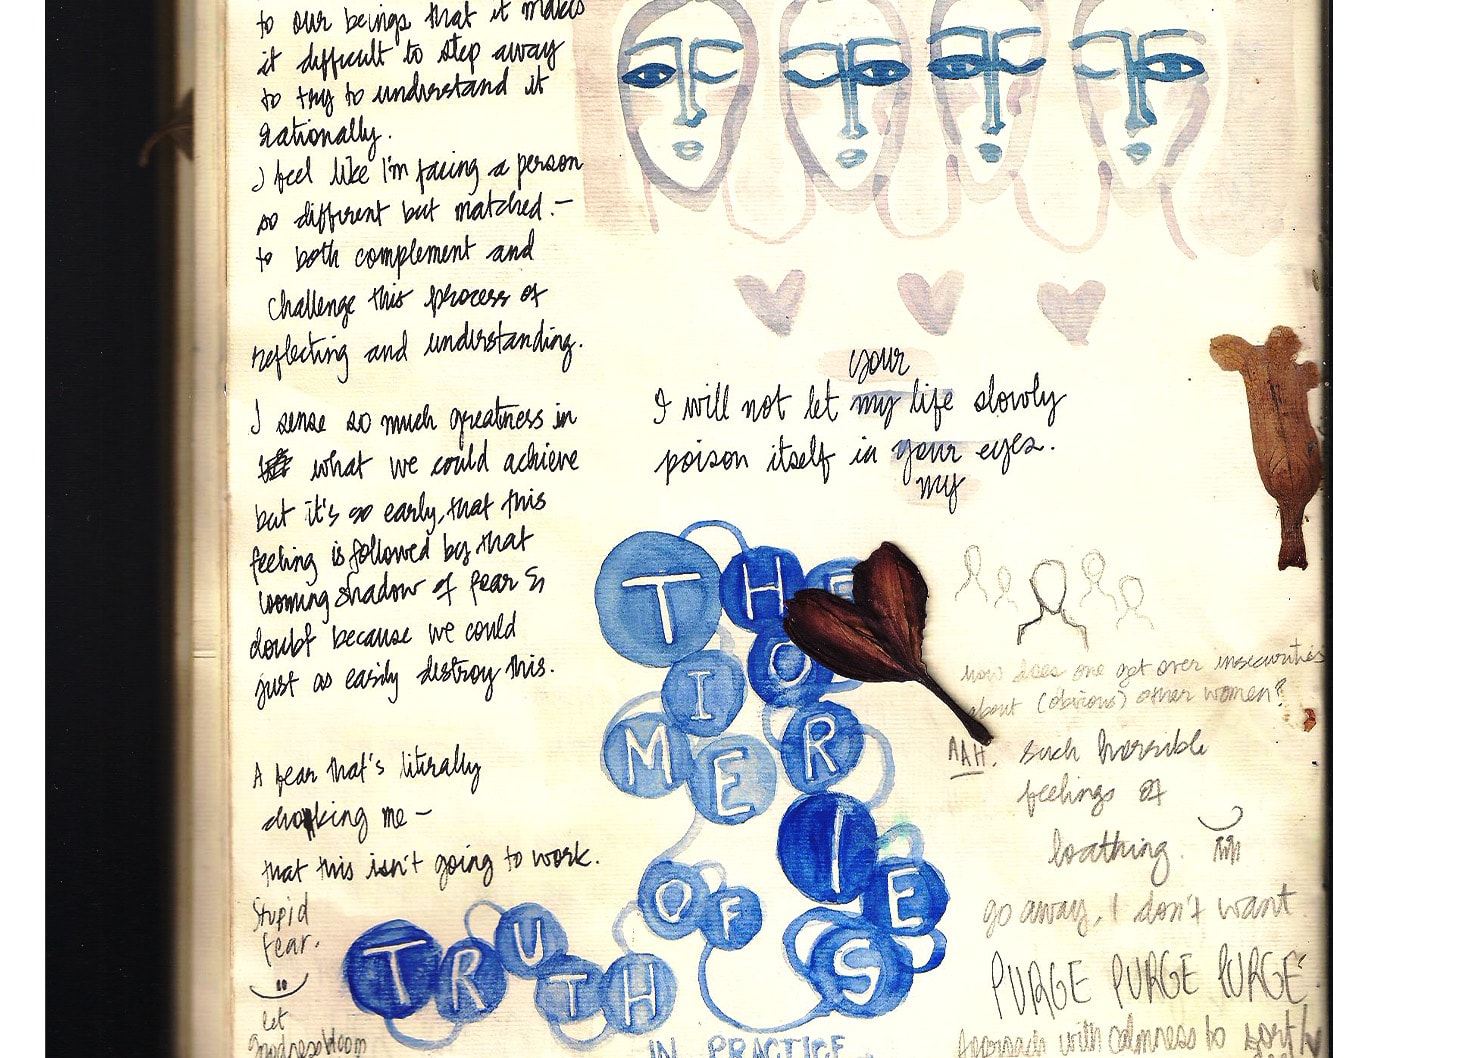 to our beings that it makes
it difficult to step away
to try to understand it
rationally.
I feel like I'm facing a person
so different but matched.-
to both complement and
challenge this process of
reflecting and understanding.
I sense so much greatness in
what we could achieve
but it's so early, that this
feeling is followed by that
looming shadow of fear &
doubt because we could
just as easily destroy this.
A fear that's literally
choking me -
that this isn't going to work.
Stupid
fear.
let
your
I will not let my life slowly
poison itself in your eyes.
my
THE
TIMER
THEORIES
OF
TRUTH
IN PRACTICE
how does one get over insecurities
about (obvious) other women?
AAH. such horrible
feelings of
loathing.
go away, I don't want
PURGE PURGE PURGE
approach with calmness to